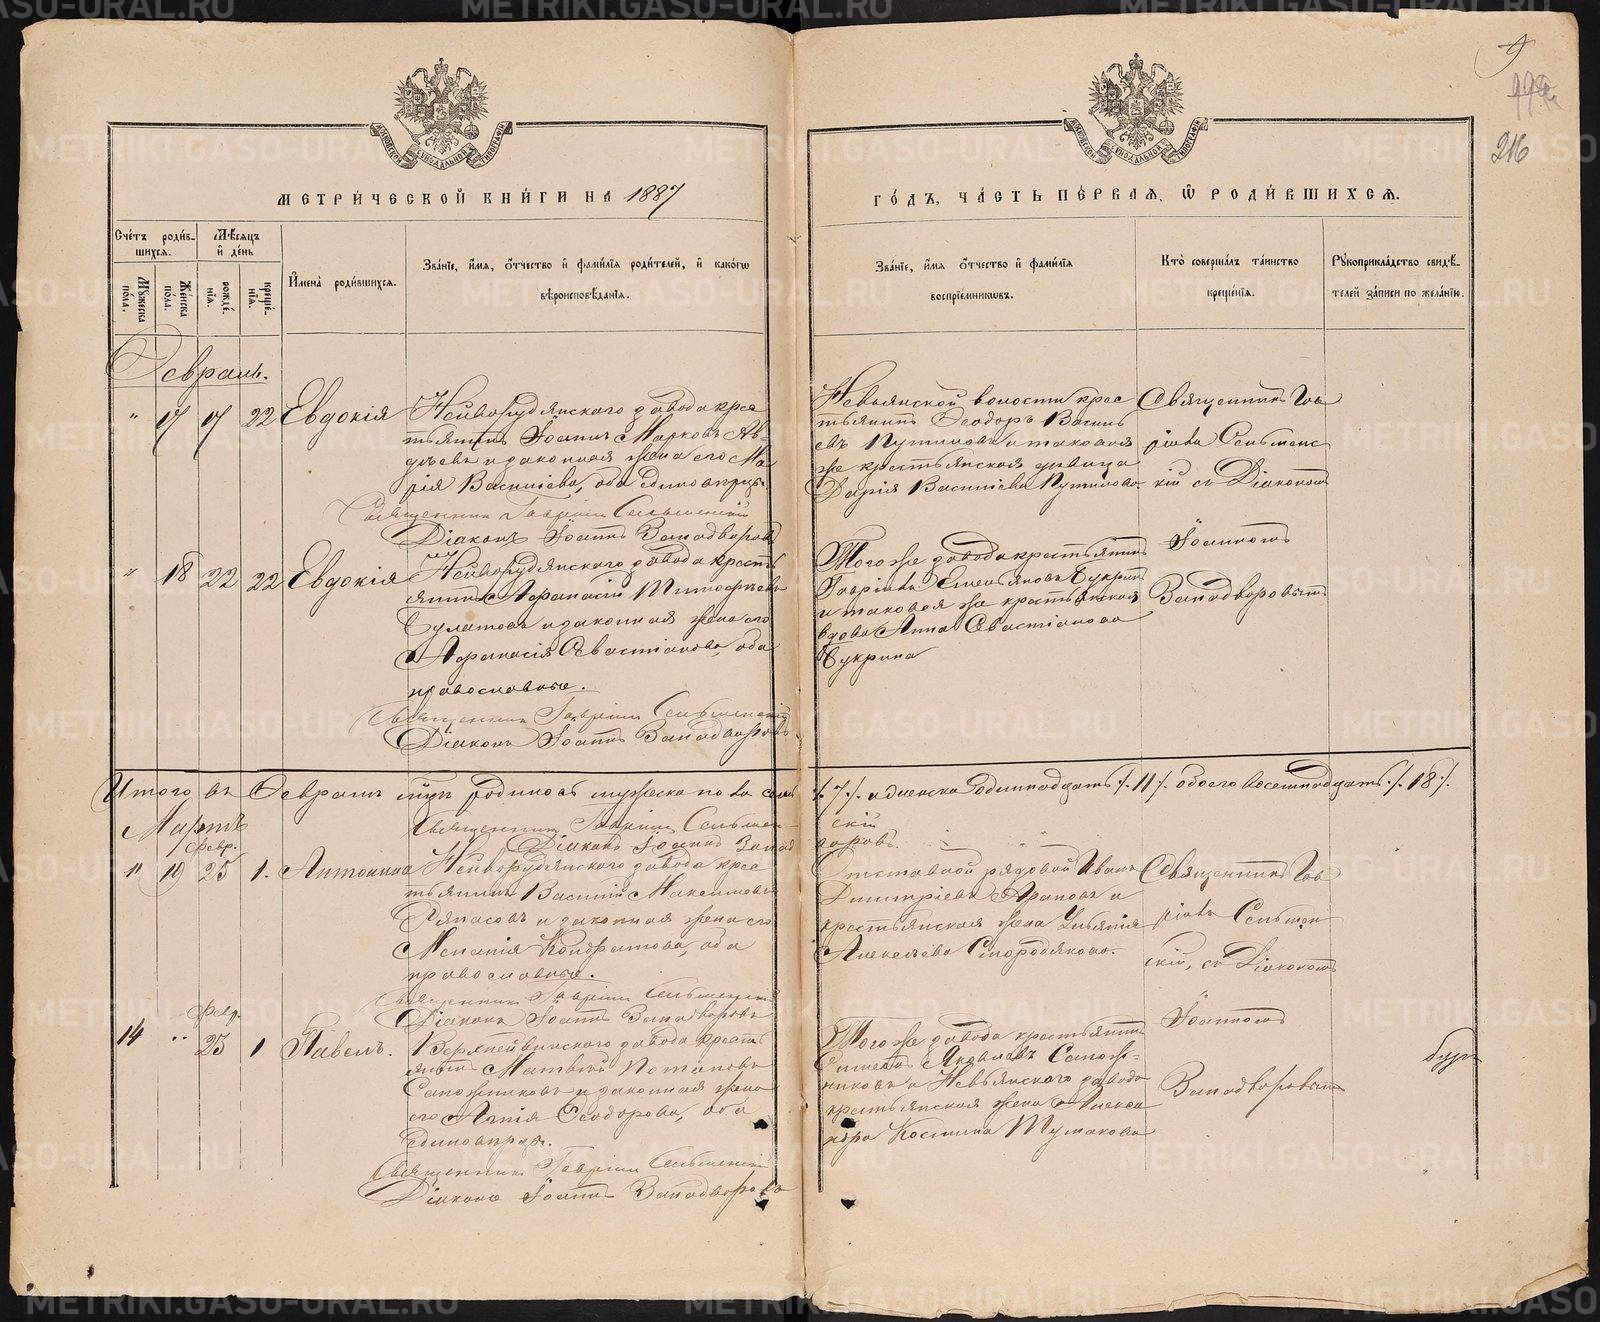 МЕТРИ́ЧЕСКОЙ КНИ́ГИ НА 1887
ГО́ДЪ, ЧА́СТЬ ПЕ́РВАЯ, Ѡ РОДИ́ВШИХСЯ.
216
Сче́тъ роди́в-
шихся.
Мѣ́сяцъ
и́ де́нь
Мꙋ́жеска
по́ла.
Же́нска
по́ла.
рожде́-
нїя.
креще́-
нїя.
И҆мена̀ роди́вшихся.
Зва́нїе, и҆́мя, о҆́тчество и҆ фами́лїя роди́телей, и҆ како́гѡ
вѣроисповѣ́данїя.
Зва́нїе, и҆́мя о҆́тчество и҆ фами́лїя
воспрїе́мникѡвъ.
Кто̀ соверша́лъ та́инство
креще́нїя.
Рꙋкоприкла́дство свидѣ́-
телей за́писи по жела́нїю.
Февраль.
" 17 17 22 Евдокія
Нейворудянскаго завода крес
тьянинъ Іоаннъ Марковъ Ав-
дѣевъ и законная жена его Ма
рія Василіева, оба единовѣрцы.
Священникъ Гавріилъ Сельменскій
Діаконъ Іоаннъ Западворовъ
Невьянской волости крес
тьянинъ Ѳеодоръ Василь
евъ Путиловъ и таковая
же крестьянская дѣвица
Дарія Василіева Путилова.
Священникъ Гав
ріилъ Сельменс
кій съ Діакономъ
Іоанномъ
Западворовымъ
" 18 22 22 Евдокія
Нейворудянскаго завода кресть
янинъ Аѳанасій Тимоѳеевъ
Булатовъ и законная жена его
Аѳанасія Севастіанова, оба
православные.
Священникъ Гавріилъ Сельменскій
Діаконъ Іоаннъ Западворовъ
Того же завода крестьянинъ
Гавріилъ Емельяновъ Чукринъ
и таковая же крестьянская
вдова Анна Севастіанова
Чукрина
Итого въ Февралѣ м-цѣ родилось мужеска пола семь /.7/. и женска одиннадцать /.11/. обоего восемнадцать /.18/.
Священникъ Гавріилъ Сельмен-
скій
Діаконъ Іоаннъ Запад
воровъ.
Мартъ
Февр.
" 19 25 1. Антонина
Нейворудянскаго завода крес
тьянинъ Василій Максимовъ
Ряпасовъ и законная жена его
Меланія Кондратова, оба
православные.
Священникъ Гавріилъ Сельменскій
Діаконъ Іоаннъ Западворовъ
Отставной рядовой Иванъ
Димитріевъ Араповъ и
крестьянская жена Уліянія
Алексѣева Смородякова.
Священникъ Гав
ріилъ Сельмен
скій, съ Діакономъ
Іоанномъ
Западворовымъ
Февр.
14 " 23 1 Павелъ.
Верхнейвинскаго завода кресть
янинъ Матвѣй Потаповъ
Сапожниковъ и законная жена
его Агнія Ѳеодорова, оба
единовѣрцы.
Священникъ Гавріилъ Сельменскій
Діаконъ Іоаннъ Западворовъ
Того же завода крестьянинъ
Симеонъ Яковлевъ Сапож-
никовъ и Невьянскаго завода
крестьянская жена Алекса
ндра Космина Тумакова
METRIKI.GASO-URAL.RU